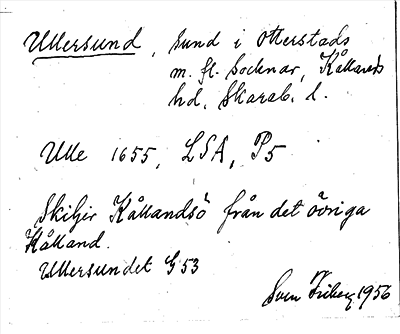 Ullersund, sund i Otterstads
m. fl. socknar, Kållands
hd, Skarab. l.
Ulle 1655, LSA, P5
Skiljer Kållandsö från det övriga
Kålland.
Ullersundet G53
Sven 1956